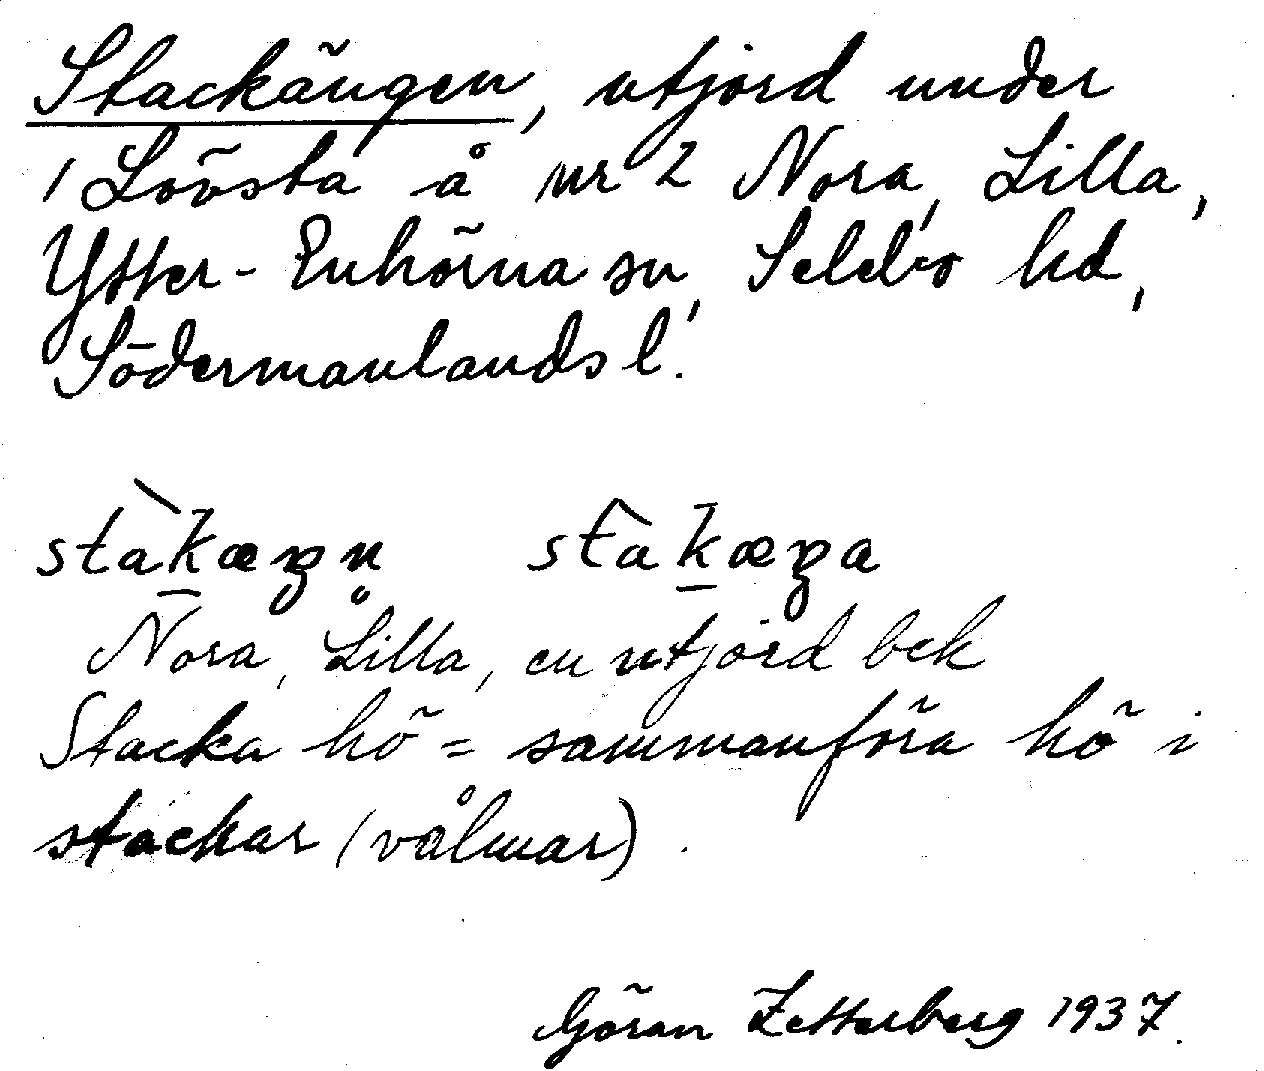 Stackängen, utjord under
1 Lövsta å nr 2 Nora, Lilla,
Ytter-Enhörna sn, Selebo hd,
Södermanlands l.
Nora, Lilla, en utjord bek
Stacka hö = sammanföra hö i
stackar (vålmar).
Göran Zetterberg 1937.